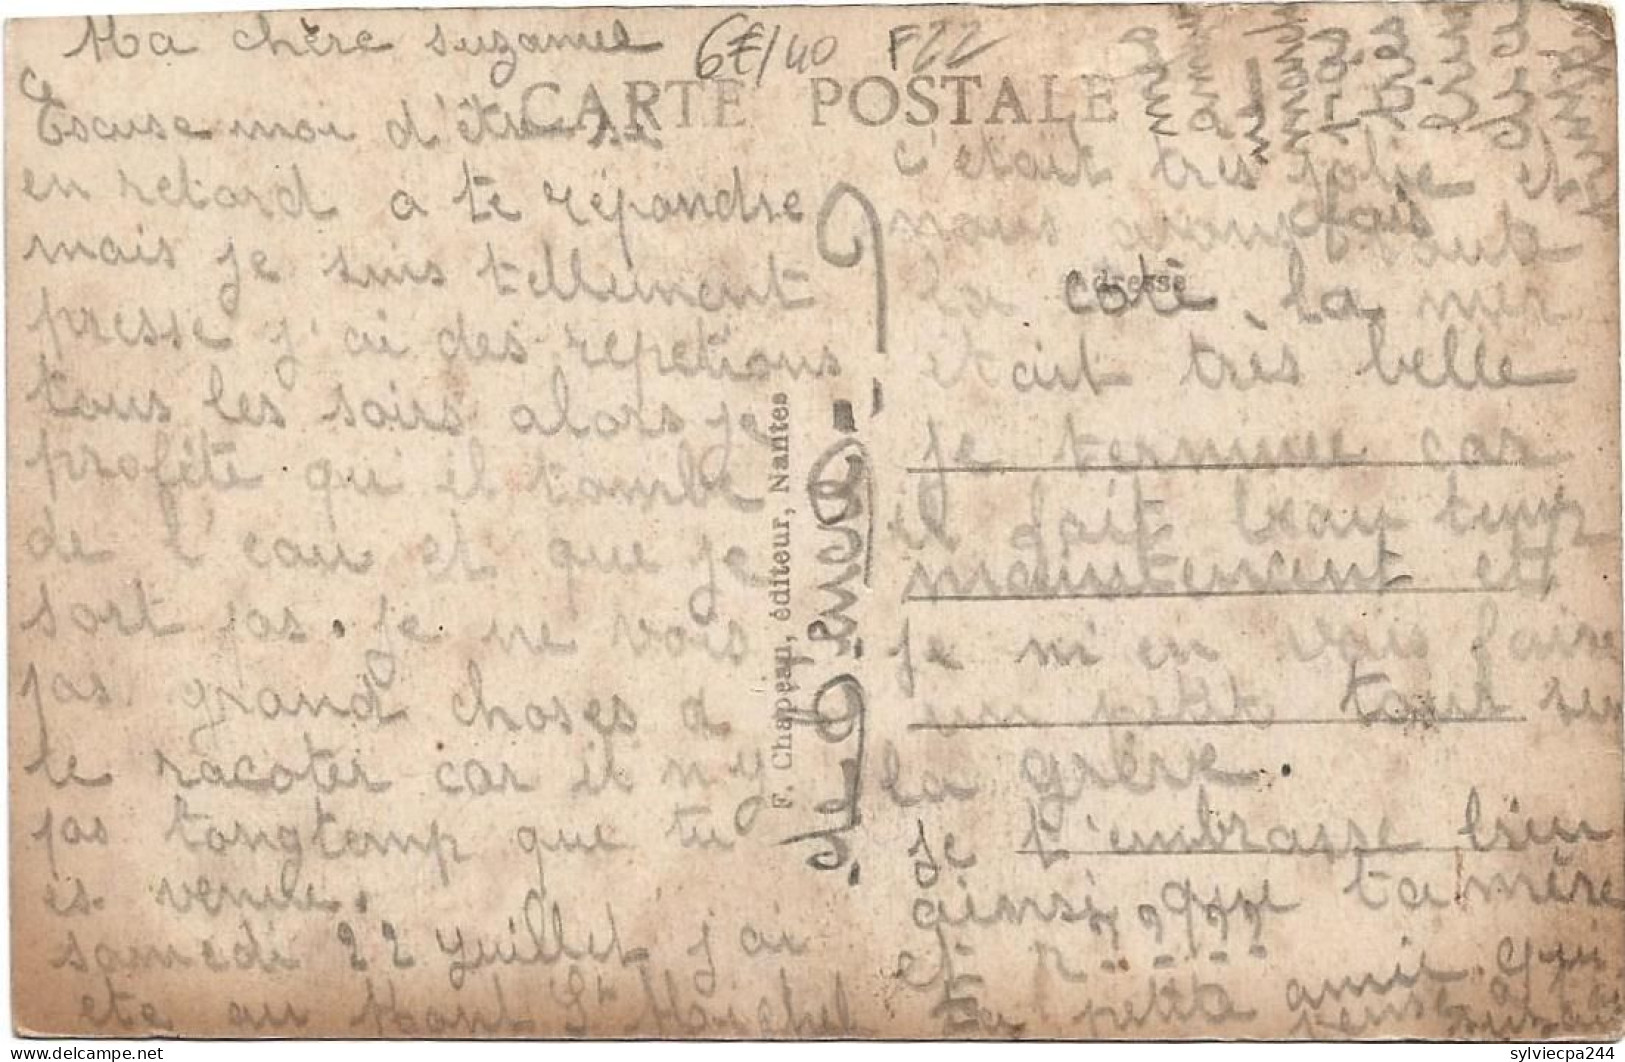 Ma chère suzanne
6€/40 F22
CARTE POSTALE
Escuse moi d'être si
en retard a te répondre
mais je suis tellement
presse j'ai des repetions
tous les soirs alors je
profite qu'il tombe
de l'eau et que je
sort pas. je ne vois
pas grand choses a
te racoter car il n'y
pas longtemp que tu
es venue.
samedi 22 juillet j'ai
ete au Mont St Michel
F. Chapeau, éditeur, Nantes
Adresse
c'etait tres jolie et
nous avons fais toute
la coté. la mer
était très belle
je termine car
il fait beau temps
maintenant et
je m'en vais faire
un petit tour sur
la grève.
je t'embrasse bien
ainsi que ta mère
et R.....? ? ? ? ?
ta petite amie qui
pense a
sylviecpa244